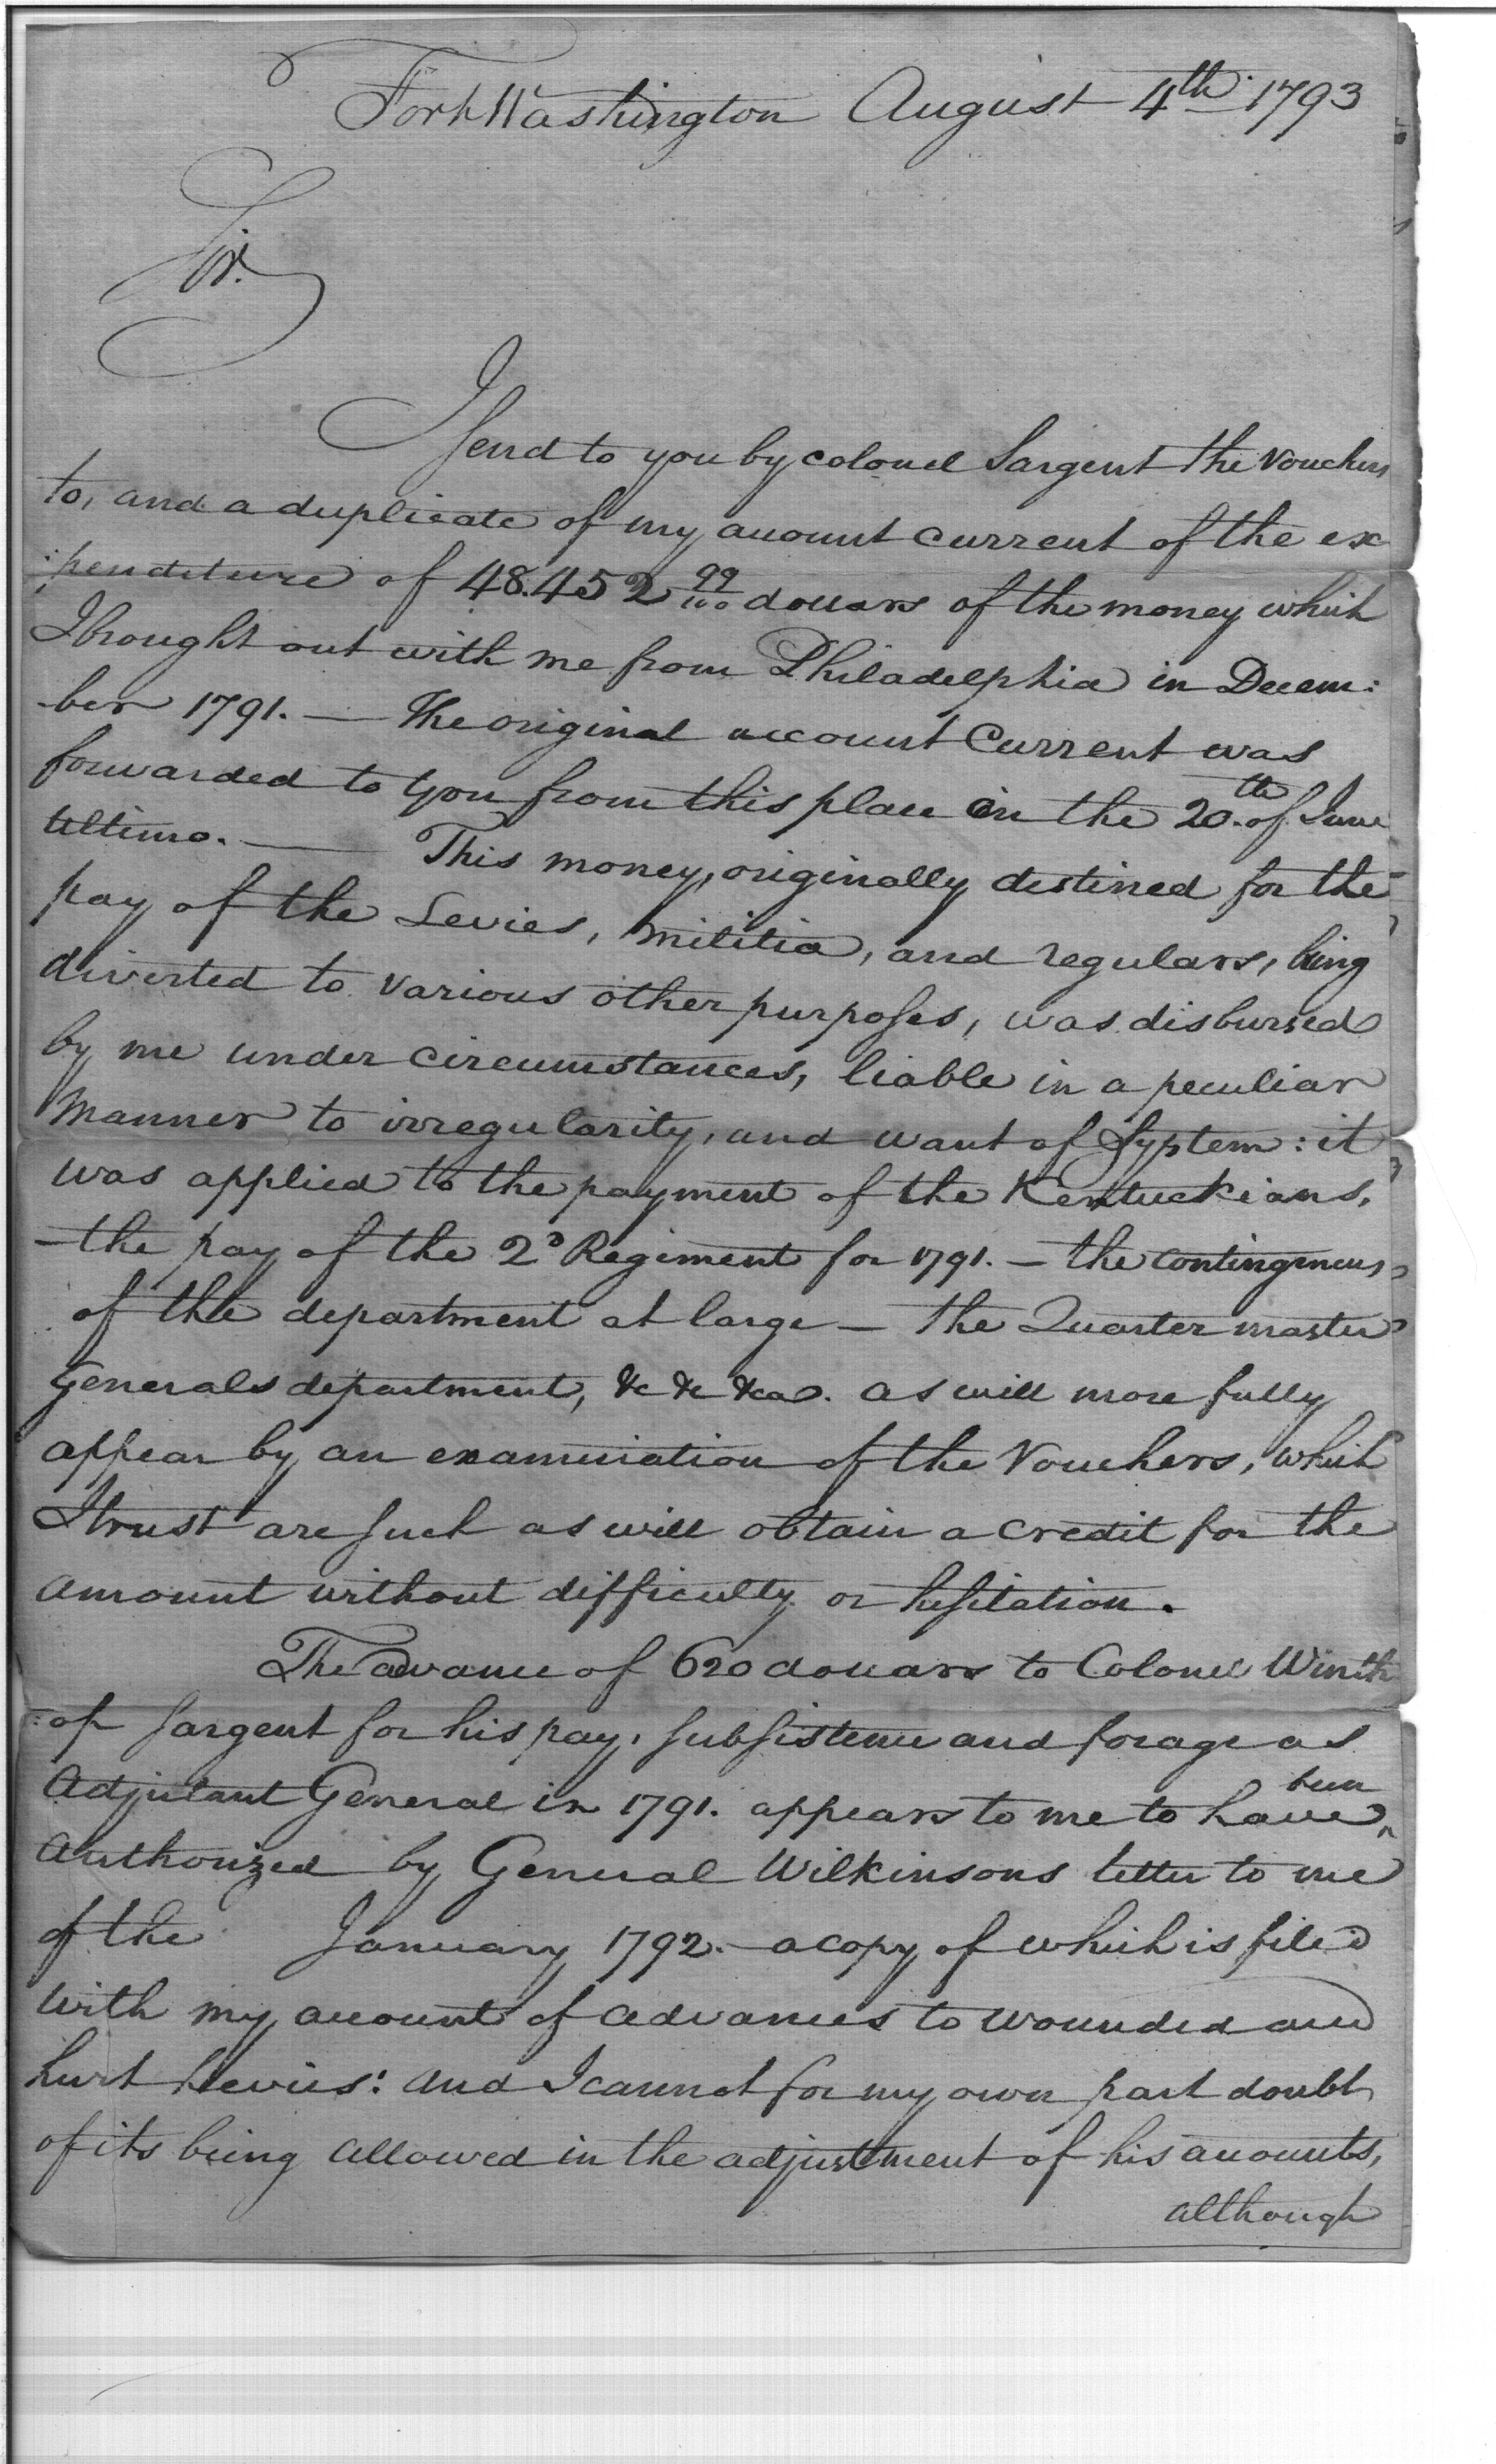 Fort Washington August 4th 1793
Sir.
I send to you by colonel Sargent the Vouchers
to, and a duplicate of my account current of the ex
:penditure of 48.452 99/100 dollars of the money which
I brought out with me from Philadelphia in Decem:
-ber 1791. — The original account Current was
forwarded to you from this place on the 20.th of June
Ultimo. — This money, originally destined for the
pay of the Levies, militia, and regulars, being
diverted to various other purposes, was disbursed
by me under circumstances, liable in a peculiar
manner to irregularity, and want of System: it
was applied to the payment of the Kentuckians,
—the pay of the 2d Regiment for 1791. — the contingencies
of the department at large — the Quarter master
Generals department, &c &c &ca. as will more fully
appear by an examination of the Vouchers, which
I trust are such as will obtain a credit for the
amount without difficulty or hesitation.
The advance of 620 dollars to Colonel Winth
:op Sargent for his pay, subsistence and forage as
Adjutant General in 1791. appears to me to have ^been
authorized by General Wilkinsons letter to me
of the January 1792.— a copy of which is filed
with my account of advances to wounded and
hurt Levies: and I cannot for my own part doubt
of its being allowed in the adjustment of his accounts,
although